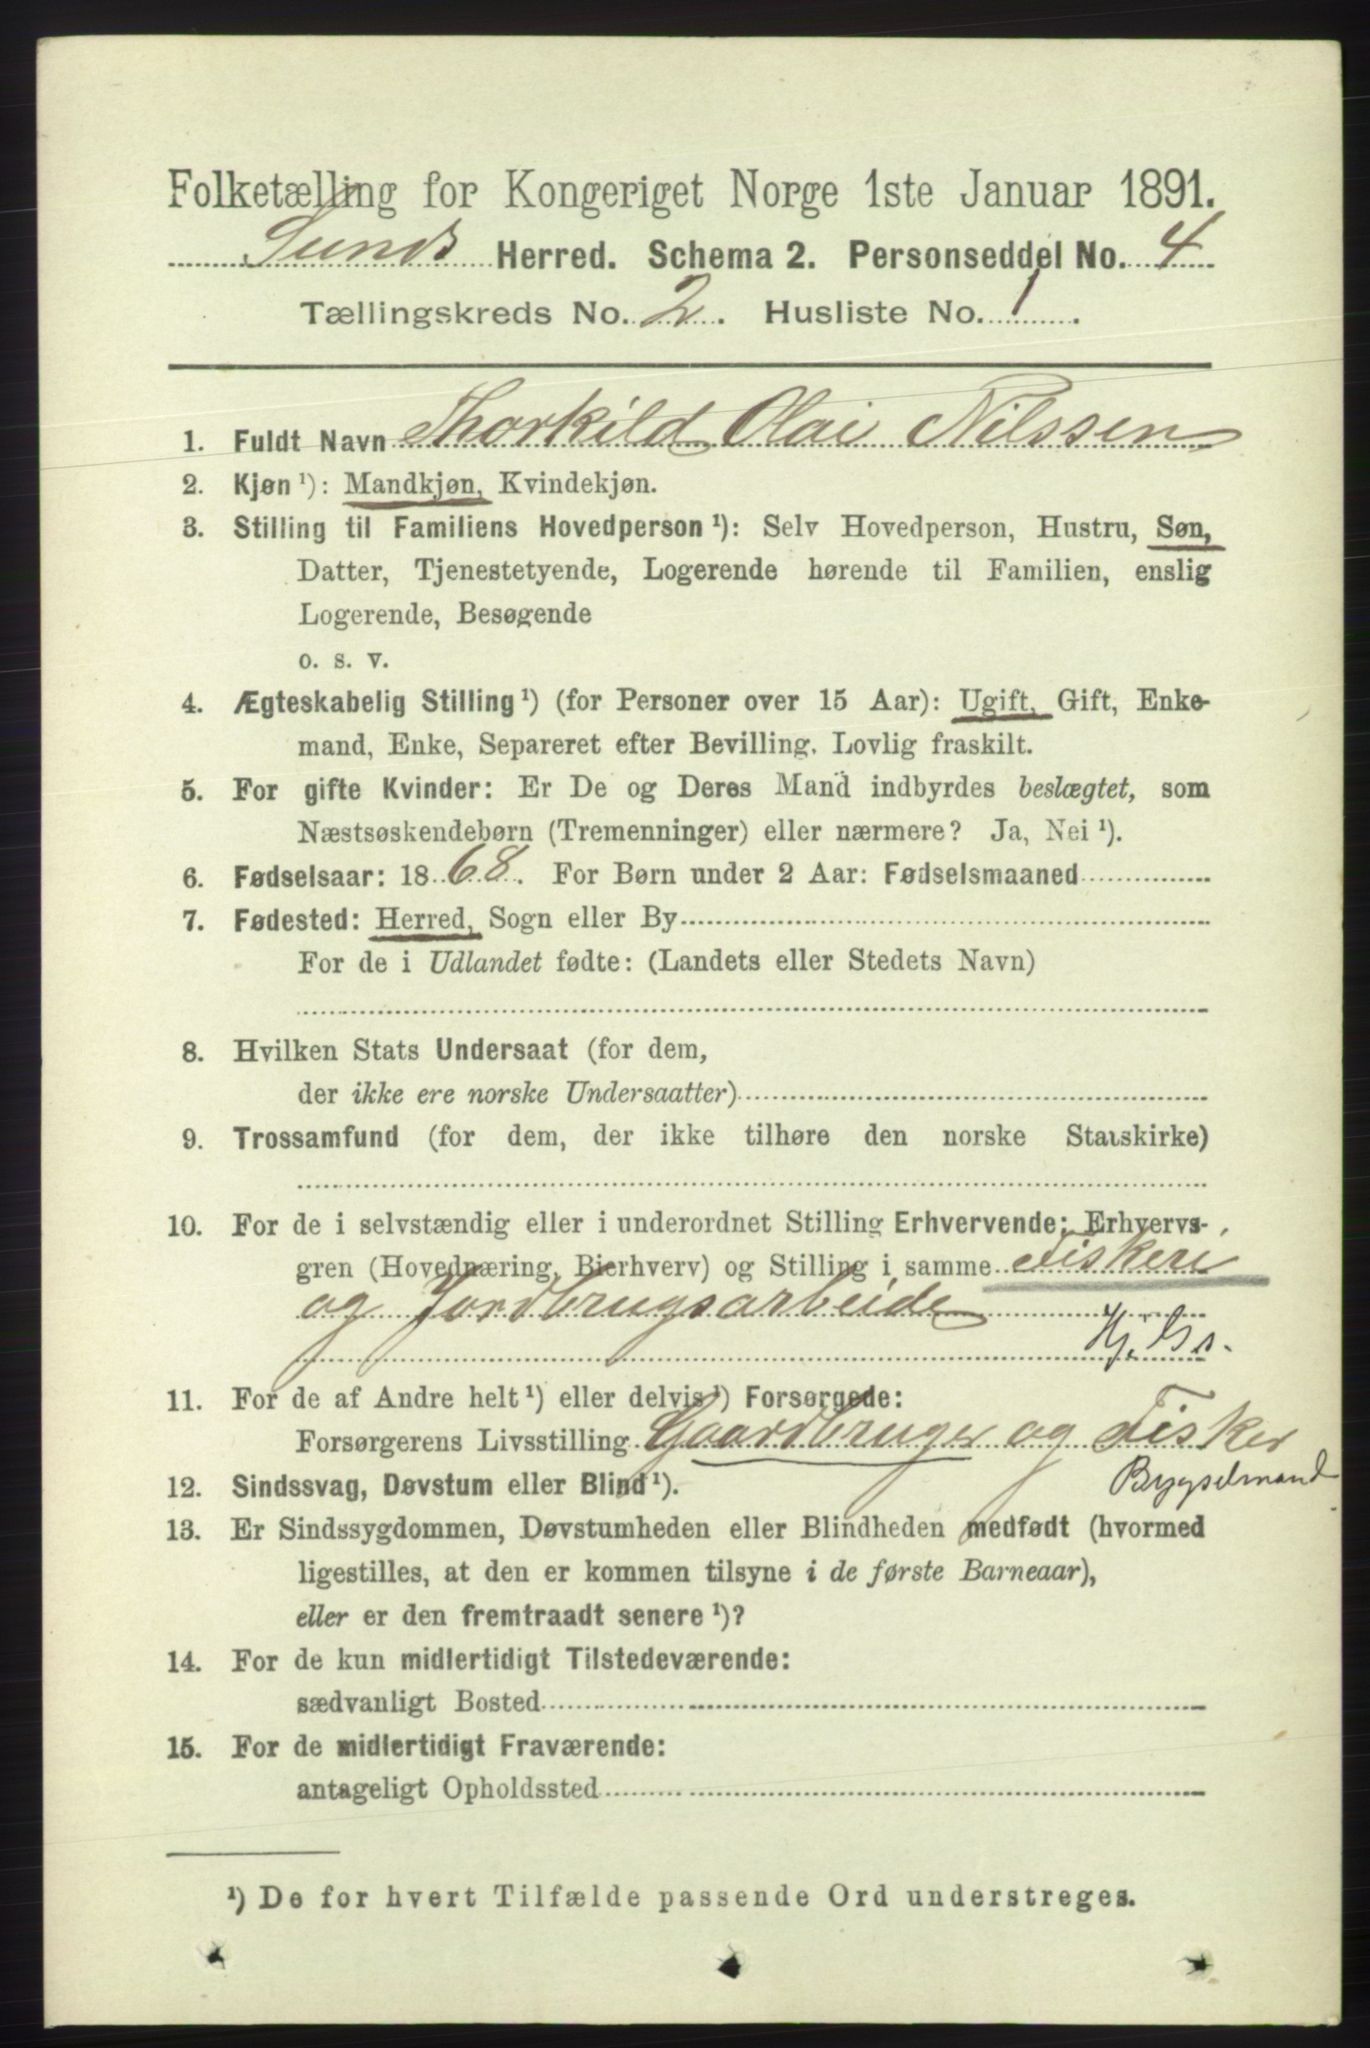 Folketælling for Kongeriget Norge 1ste Januar 1891.
Sunds Herred. Schema 2. Personseddel No. 4
Tællingskreds No. 2. Husliste No. 1.
1. Fuldt Navn Thorkild Olai Nilssen
2. Kjøn ¹): Mandkjøn, Kvindekjøn.
3. Stilling til Familiens Hovedperson ¹): Selv Hovedperson, Hustru, Søn,
Datter, Tjenestetyende, Logerende hørende til Familien, enslig
Logerende, Besøgende
o. s. v.
4. Ægteskabelig Stilling ¹) (for Personer over 15 Aar): Ugift, Gift, Enke-
mand, Enke, Separeret efter Bevilling. Lovlig fraskilt.
5. For gifte Kvinder: Er De og Deres Mand indbyrdes beslægtet, som
Næstsøskendebørn (Tremenninger) eller nærmere? Ja, Nei ¹).
6. Fødselsaar: 1868. For Børn under 2 Aar: Fødselsmaaned
7. Fødested: Herred, Sogn eller By
For de i Udlandet fødte: (Landets eller Stedets Navn)
8. Hvilken Stats Undersaat (for dem,
der ikke ere norske Undersaatter)
9. Trossamfund (for dem, der ikke tilhøre den norske Statskirke)
10. For de i selvstændig eller i underordnet Stilling Erhvervende: Erhvervs-
gren (Hovednæring, Bierhverv) og Stilling i samme Fiskeri
og Jordbrugsarbeide
11. For de af Andre helt ¹) eller delvis ¹) Forsørgede:
Forsørgerens Livsstilling Gaardbruger og Fisker
Bygselmand
12. Sindssvag, Døvstum eller Blind ¹).
13. Er Sindssygdommen, Døvstumheden eller Blindheden medfødt (hvormed
ligestilles, at den er kommen tilsyne i de første Barneaar),
eller er den fremtraadt senere ¹)?
14. For de kun midlertidigt Tilstedeværende:
sædvanligt Bosted
15. For de midlertidigt Fraværende:
antageligt Opholdssted
¹) De for hvert Tilfælde passende Ord understreges.